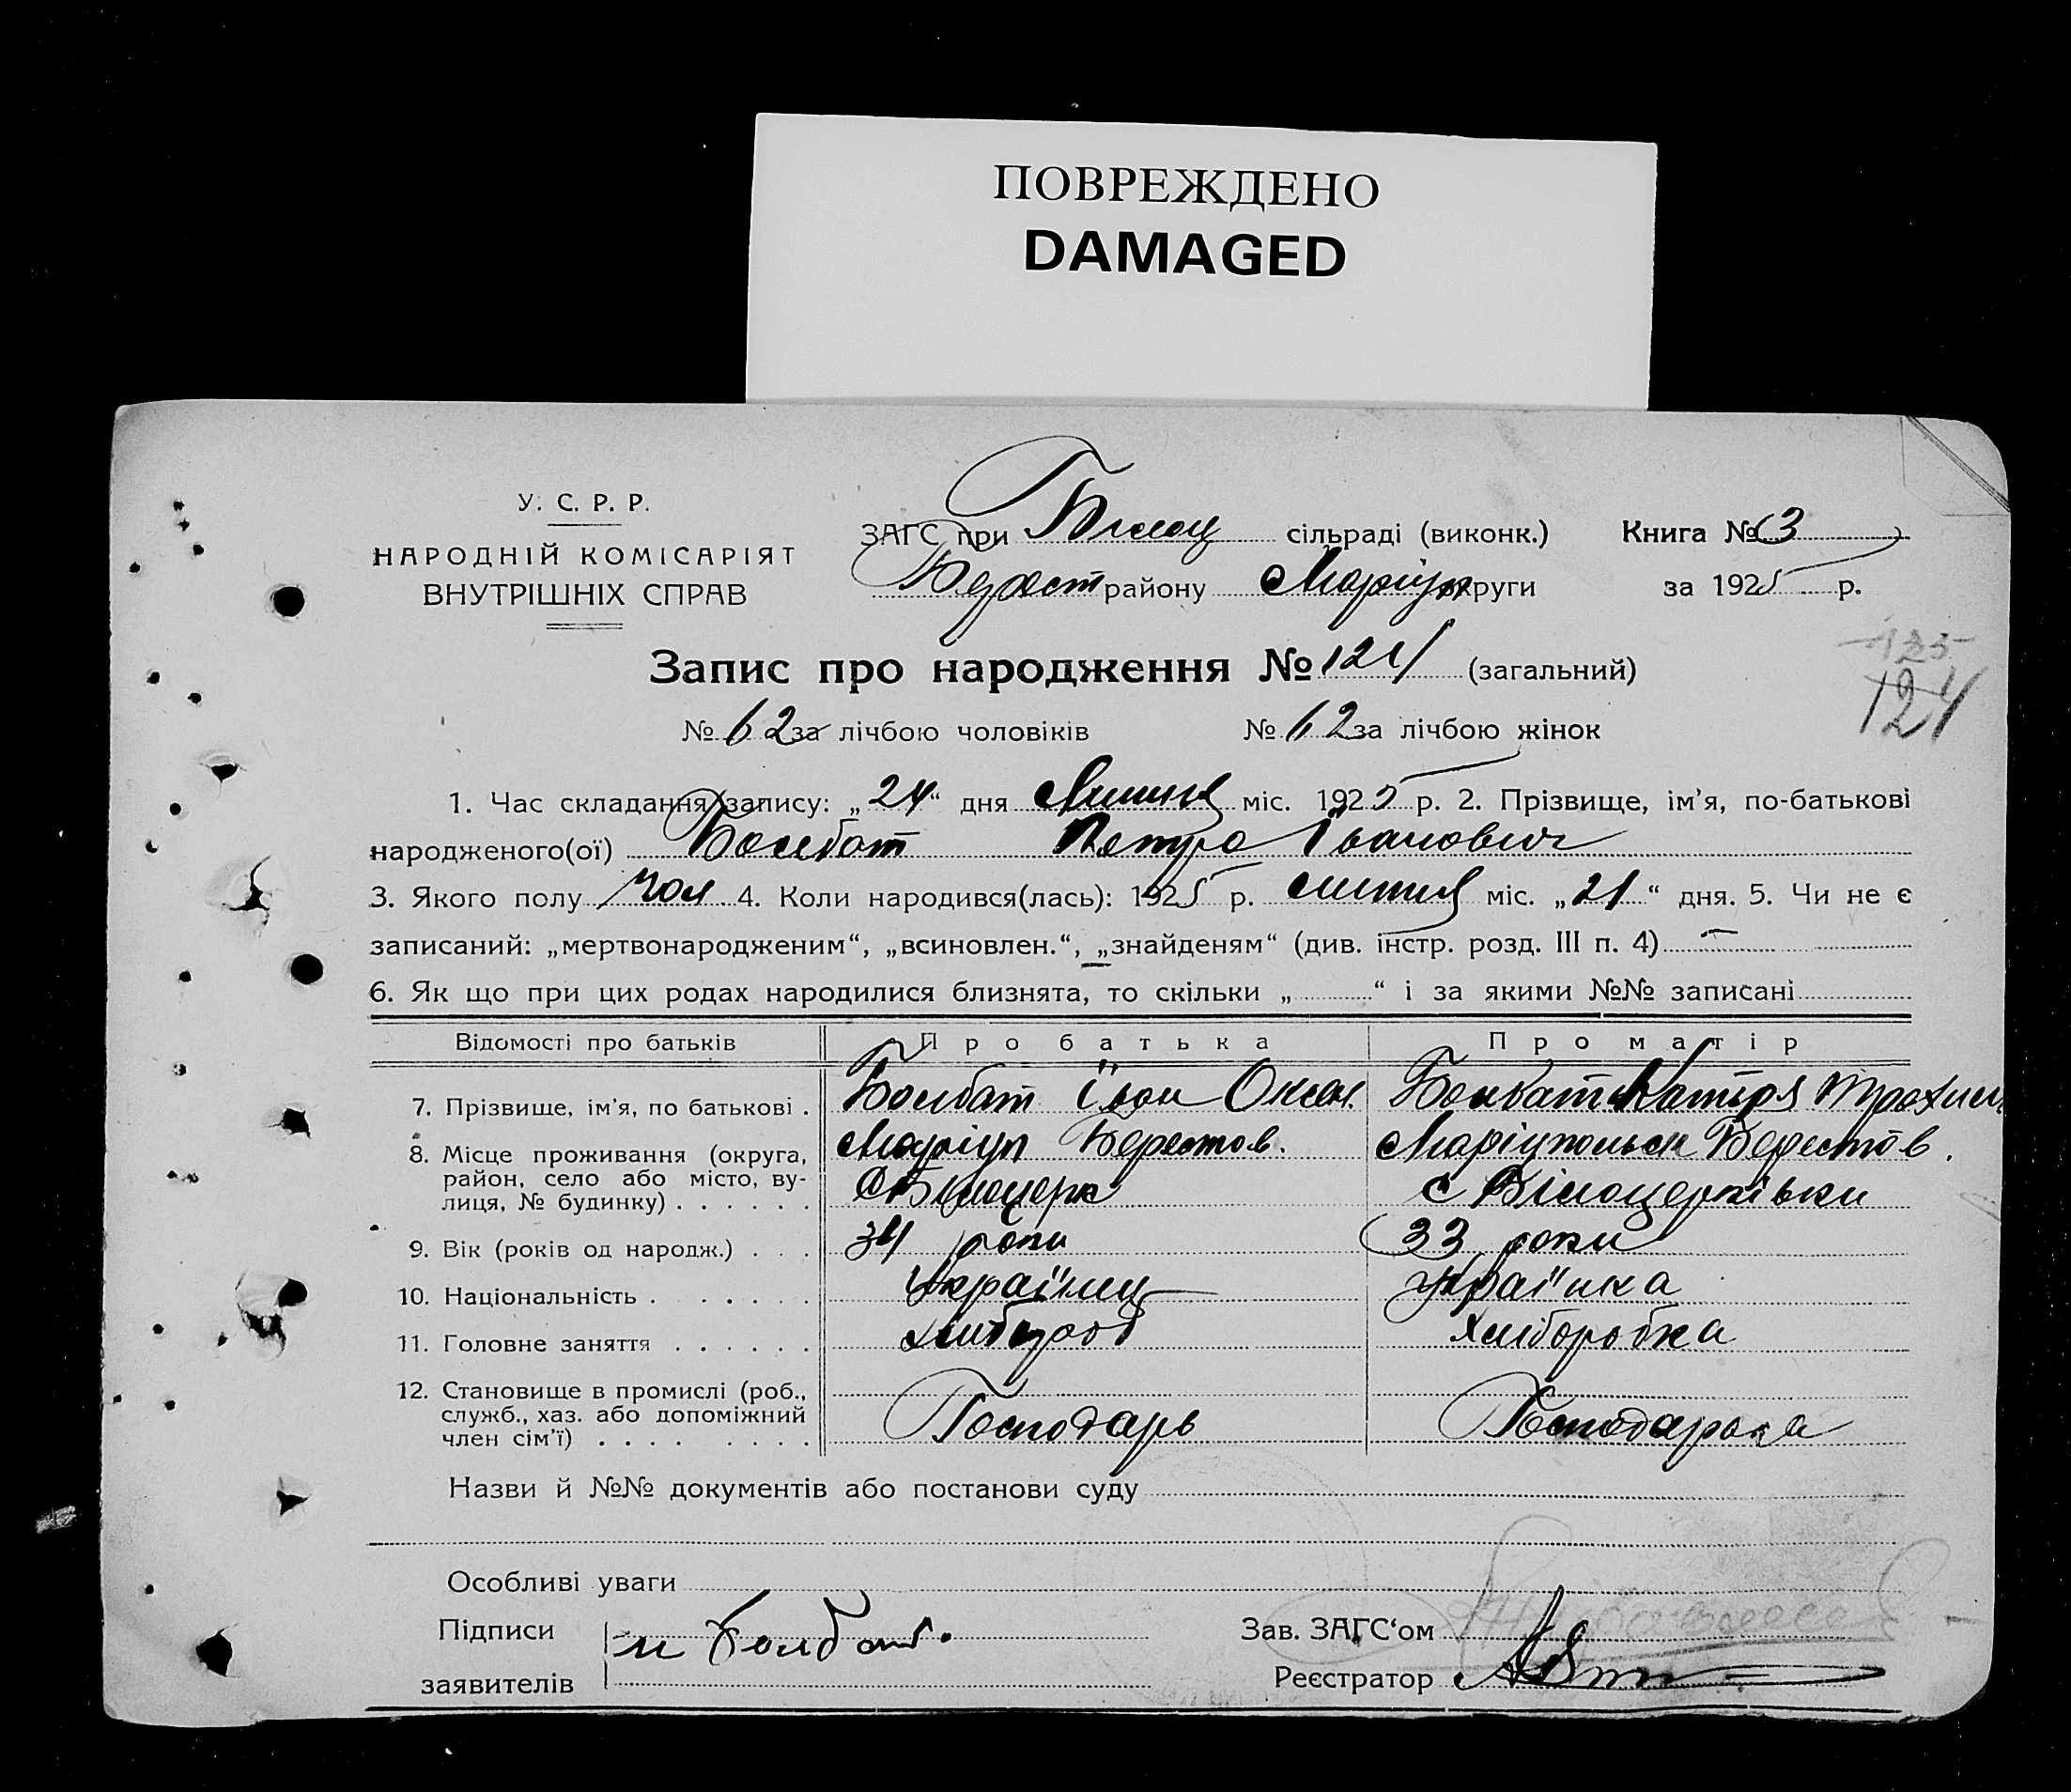 ПОВРЕЖДЕНО
DAMAGED
У. С. Р. Р.
НАРОДНІЙ КОМІСАРІЯТ
ВНУТРІШНІХ СПРАВ
ЗАГС при Білоц сільраді (виконк.) Книга № 3
Берест району Маріуп округи за 1925 р.
Запис про народження № 124 (загальний)
125
124
№ 62 за лічбою чоловіків № 62 за лічбою жінок
1. Час складання запису: „24“ дня Липня міс. 1925 р. 2. Прізвище, ім'я, по-батькові
народженого(ої) Болбат Петро Іванович
3. Якого полу чол 4. Коли народився(лась): 1925 р. липня міс. „21“ дня. 5. Чи не є
записаний: „мертвонародженим“, „всиновлен.“, „знайденям“ (див. інстр. розд. III п. 4) —
6. Як що при цих родах народилися близнята, то скільки „ “ і за якими №№ записані
Відомості про батьків Про батька Про матір
7. Прізвище, ім'я, по батькові . Болбат Іван Оксен. Болбат Катря Трохим
8. Місце проживання (округа, Маріуп Берестов. Маріупольск Берестов.
район, село або місто, ву-
лиця, № будинку) . . . . . . с Білоцерк с Білоцерківки
9. Вік (років од народж.) . . . 34 роки 33 роки
10. Національність . . . . . Українец Українка
11. Головне заняття . . . . . . Хлібороб Хліборобка
12. Становище в промислі (роб.,
служб., хаз. або допоміжний
член сім'ї) . . . . . . . . Господарь Господарька
Назви й №№ документів або постанови суду
Особливі уваги
Підписи и Болбат. Зав. ЗАГС‘ом
заявителів Реєстратор